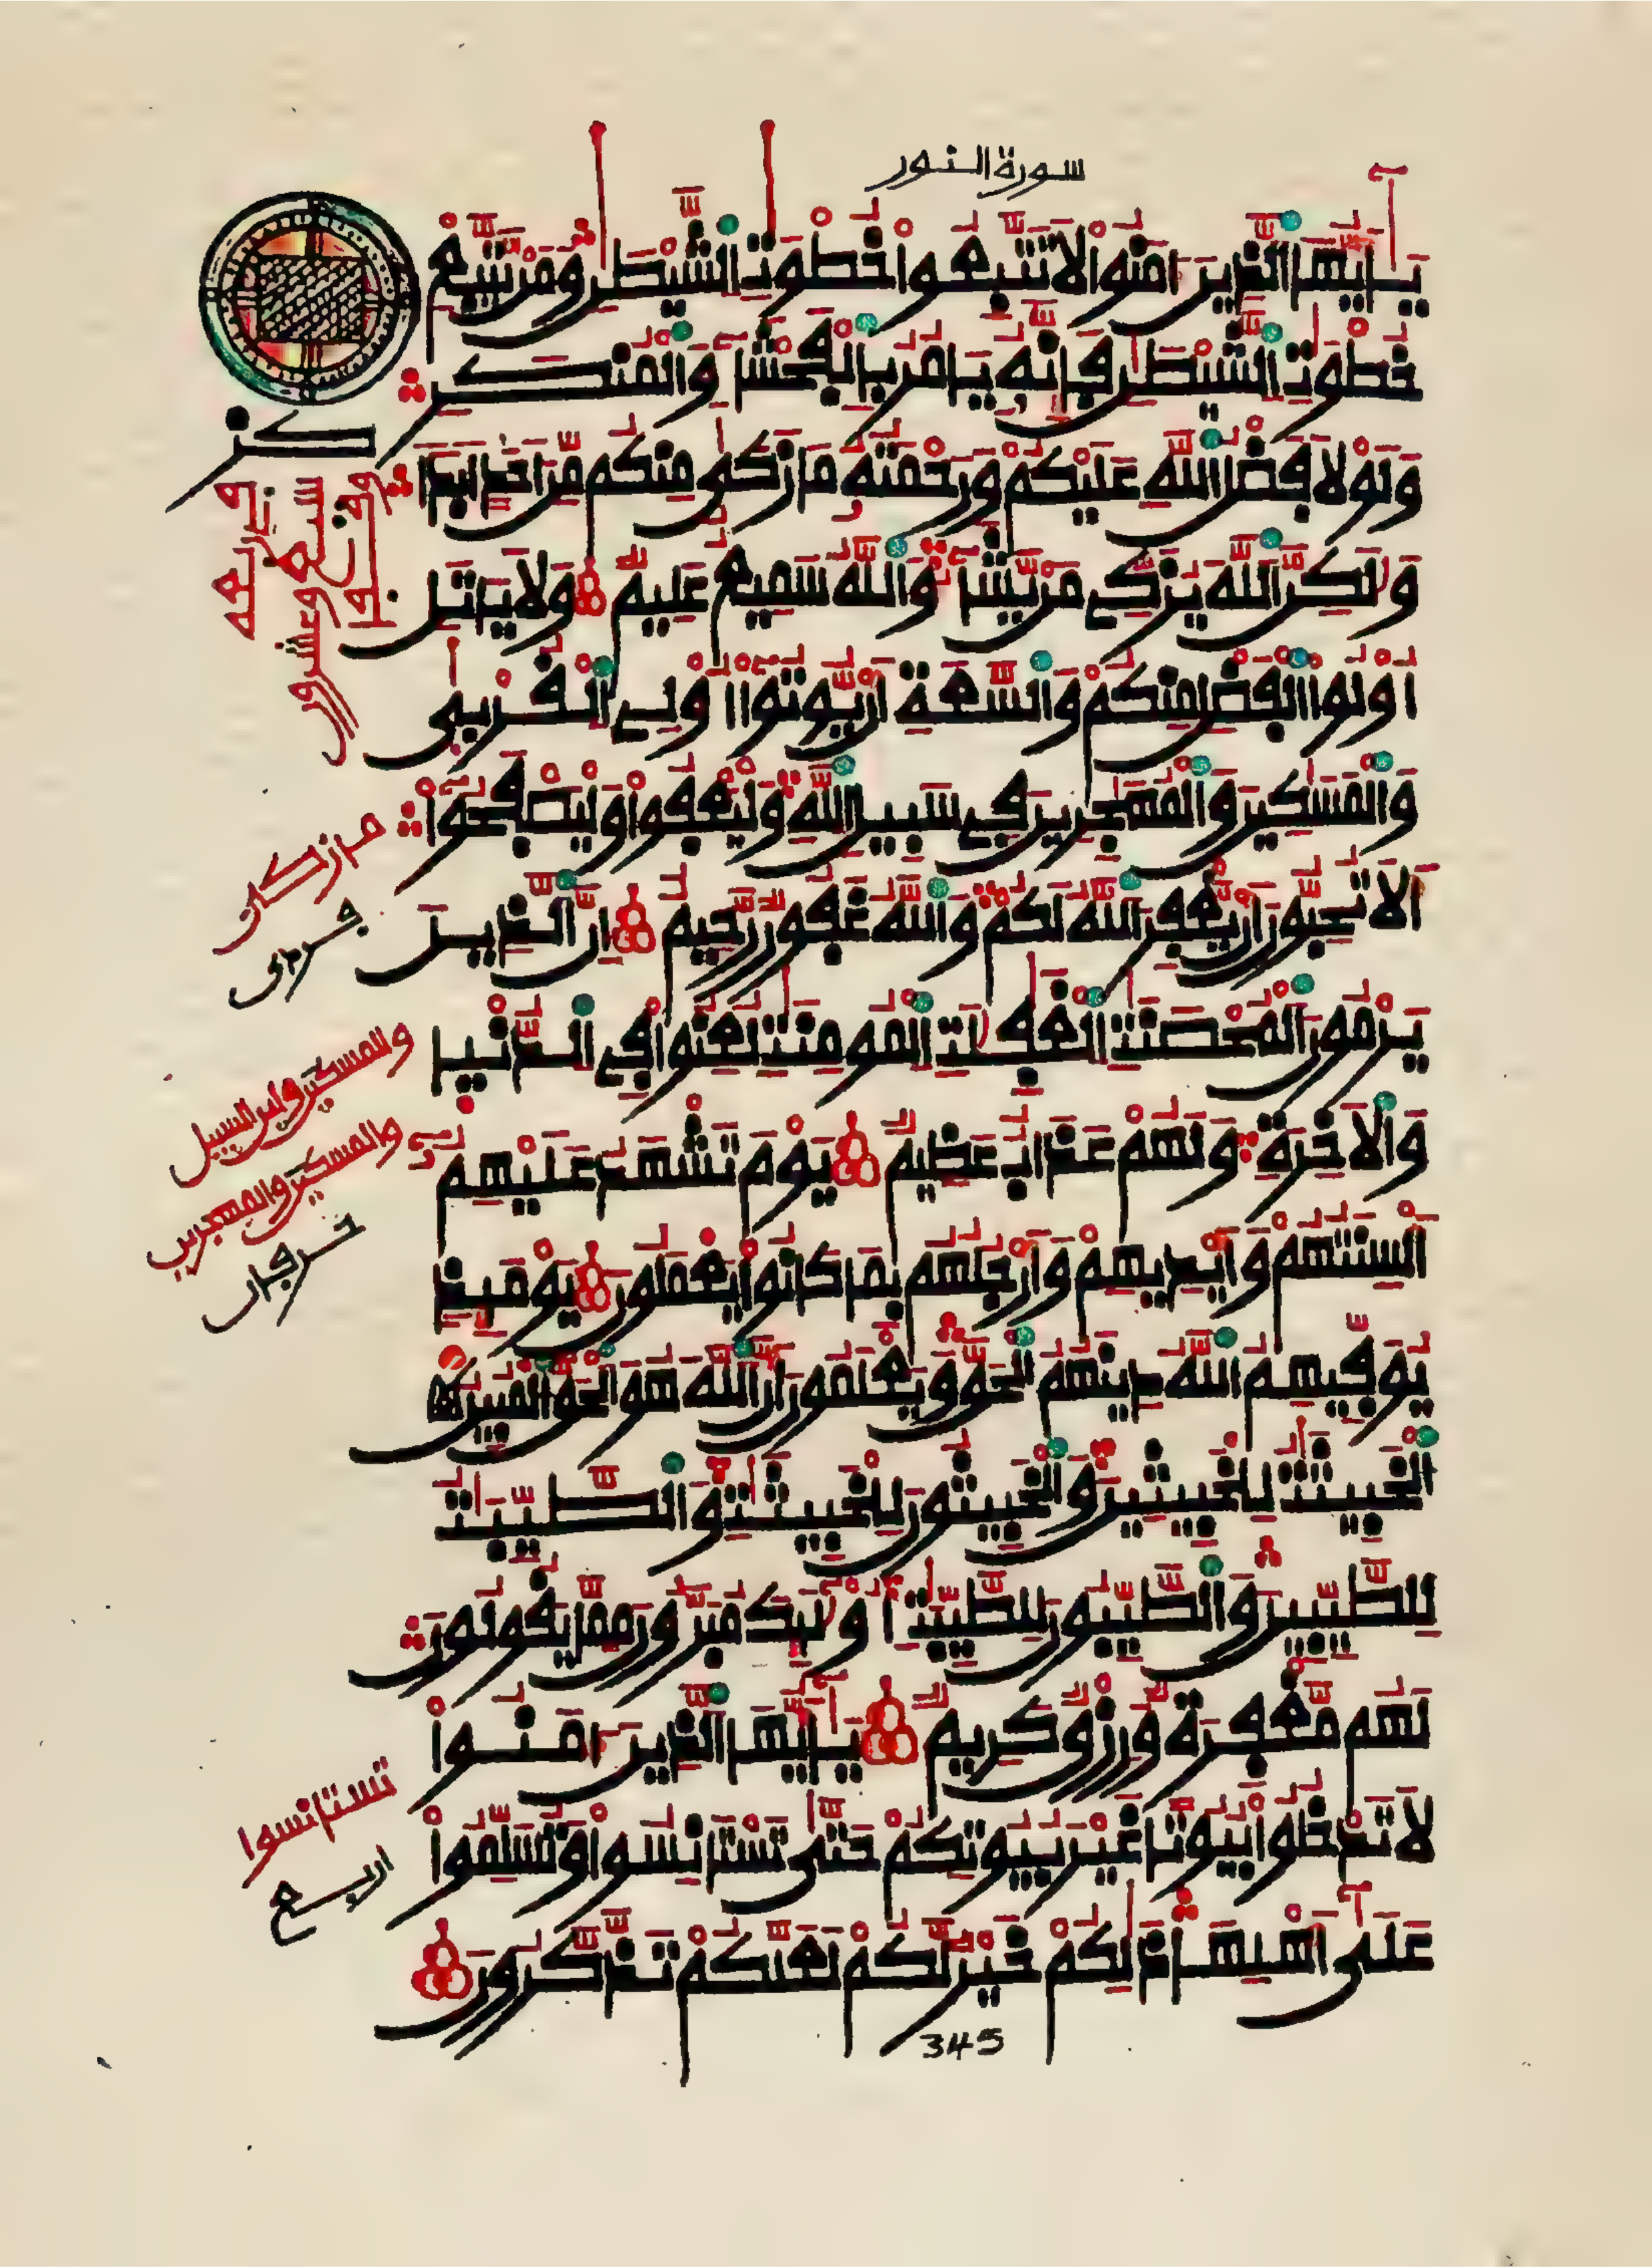 سورة النور
يَٰأَيُّهَا ٱلذِينَ ءَامَنُواْ لَا تَتَّبِعُواْ خُطْوَٰتِ ٱلشَّيْطَٰنِ وَمَنْ يَّتَّبِعْ
خُطْوَٰتِ ٱلشَّيْطَٰنِ فَإِنَّهُۥ يَامُرُ بِالْفَحْشَآءِ وَالْمُنكَرِ
وَلَوْلَا فَضْلُ ٱللَّهِ عَلَيْكُمْ وَرَحْمَتُهُۥ مَا زَكَىٰ مِنكُم مِّنَ اَحَدٍ اَبَدًا
وَلَٰكِنَّ ٱللَّهَ يُزَكِّے مَنْ يَّشَآءُ وَاللَّهُ سَمِيعٌ عَلِيمٌ وَلَا يَاتَلِ
أُوْلُواْ ٱلْفَضْلِ مِنكُمْ وَالسَّعَةِ أَنْ يُّوتُوٓاْ أُوْلِے ٱلْقُرْبَىٰ
وَالْمَسَٰكِينَ وَالْمُهَٰجِرِينَ فِے سَبِيلِ ٱللَّهِ وَلْيَعْفُواْ وَلْيَصْفَحُوٓاْ
أَلَا تُحِبُّونَ أَنْ يَّغْفِرَ ٱللَّهُ لَكُمْ وَاللَّهُ غَفُورٌ رَّحِيمٌ إِنَّ ٱلذِينَ
يَرْمُونَ ٱلْمُحْصَنَٰتِ ٱلْغَٰفِلَٰتِ ٱلْمُومِنَٰتِ لُعِنُواْ فِے ٱلدُّنْيَا
وَالَاخِرَةِ وَلَهُمْ عَذَابٌ عَظِيمٌ يَوْمَ تَشْهَدُ عَلَيْهِمُۥٓ
أَلْسِنَتُهُمْ وَأَيْدِيهِمْ وَأَرْجُلُهُم بِمَا كَانُواْ يَعْمَلُونَ يَوْمَئِذٍ
يُوَفِّيهِمُ ٱللَّهُ دِينَهُمُ ٱلْحَقَّ وَيَعْلَمُونَ أَنَّ ٱللَّهَ هُوَ ٱلْحَقُّ ٱلْمُبِينُ
ٱلْخَبِيثَٰتُ لِلْخَبِيثِينَ وَالْخَبِيثُونَ لِلْخَبِيثَٰتِ وَالطَّيِّبَٰتُ
لِلطَّيِّبِينَ وَالطَّيِّبُونَ لِلطَّيِّبَٰتِ أُوْلَٰٓئِكَ مُبَرَّءُونَ مِمَّا يَقُولُونَ
لَهُم مَّغْفِرَةٌ وَرِزْقٌ كَرِيمٌ يَٰأَيُّهَا ٱلذِينَ ءَامَنُواْ
لَا تَدْخُلُواْ بُيُوتًا غَيْرَ بُيُوتِكُمْ حَتَّىٰ تَسْتَانِسُواْ وَتُسَلِّمُواْ
عَلَىٰٓ أَهْلِهَا ذَٰلِكُمْ خَيْرٌ لَّكُمْ لَعَلَّكُمْ تَذَّكَّرُونَ
345
ما زكى
والمسكين وابن السبيل
والمسكين والمهجرين
تستانسوا
اربع